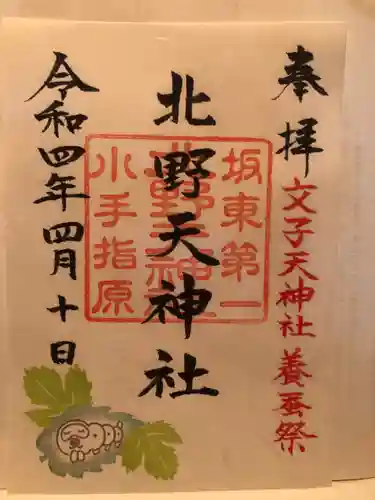 奉拝
文子天神社養蚕祭
北野天神社
坂東第一
北野天神社
小手指原
令和四年四月十日